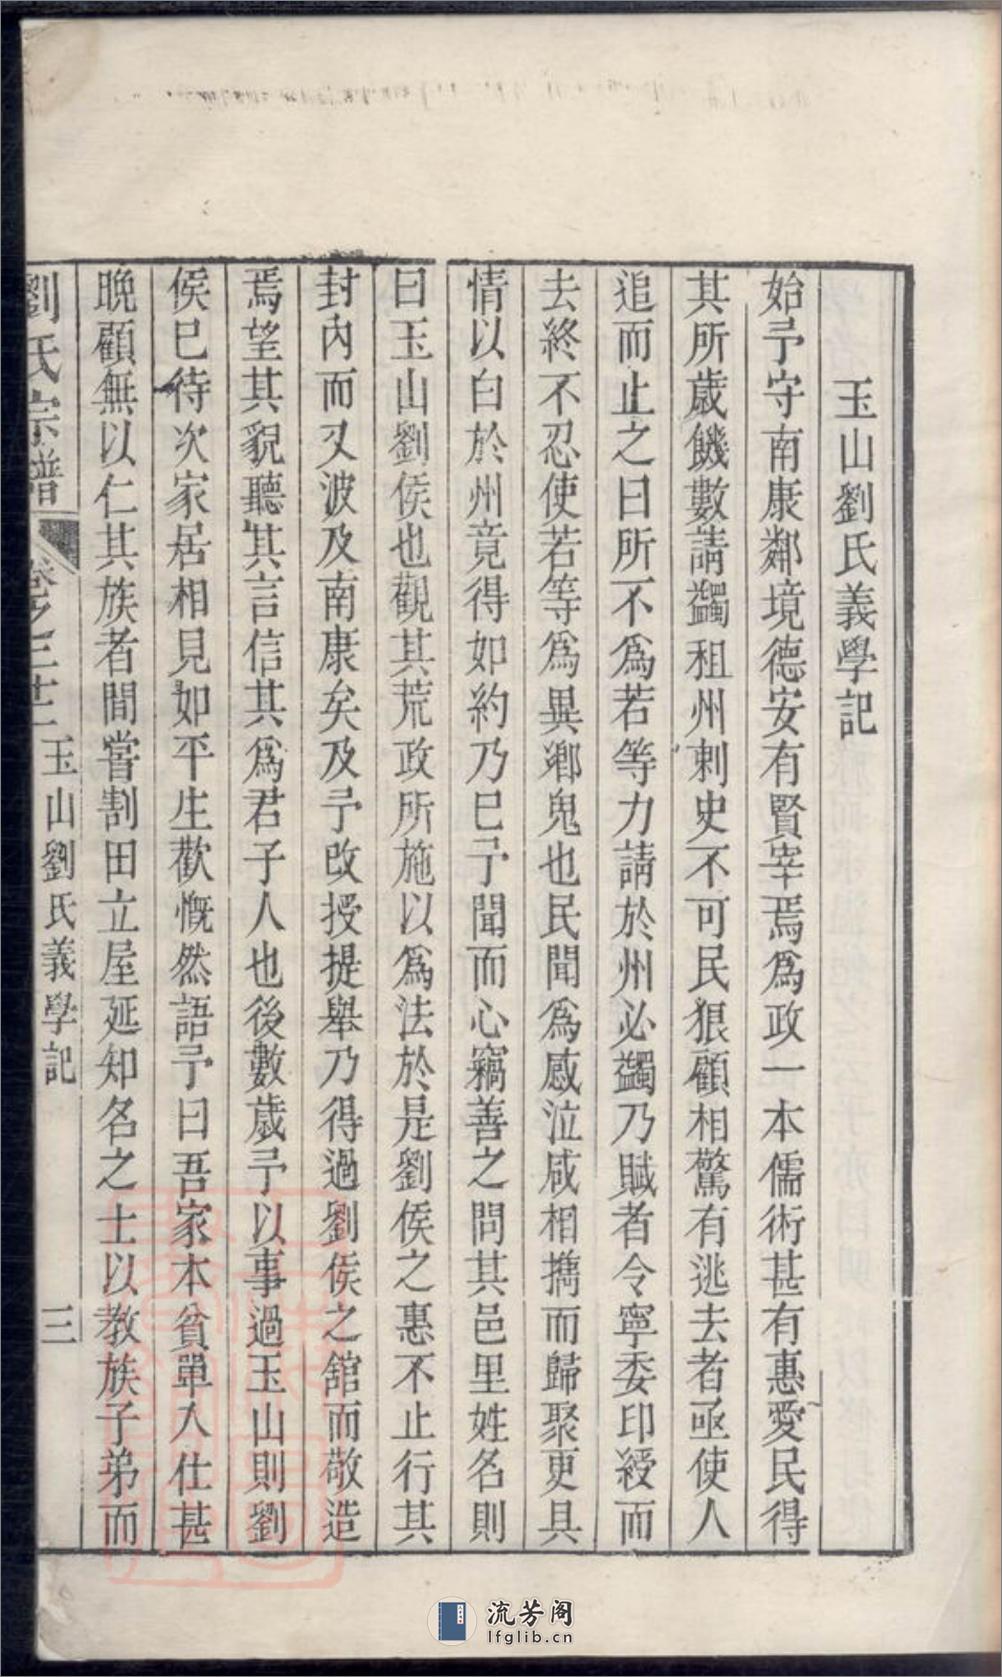 玉山劉氏義學記
始予守南康鄰境德安有賢宰焉爲政一本儒術甚有惠愛民得
其所歲饑數請蠲租州刺史不可民狼顧相驚有逃去者亟使人
追而止之曰所不爲若等力請於州必蠲乃賦者令寧委印綬而
去終不忍使若等爲異鄉鬼也民聞爲感泣咸相攜而歸聚更具
情以白於州竟得如約乃巳予聞而心竊善之問其邑里姓名則
曰玉山劉侯也觀其荒政所施以爲法於是劉侯之惠不止行其
封內而又波及南康矣及予改授提舉乃得過劉侯之舘而敬造
焉望其貌聽其言信其爲君子人也後數歲予以事過玉山則劉
侯巳待次家居相見如平生歡慨然語予曰吾家本貧單入仕甚
晚顧無以仁其族者間嘗割田立屋延知名之士以教族子弟而
劉氏宗譜 卷之三十二 玉山劉氏義學記 三
流芳阁
lfglib.cn